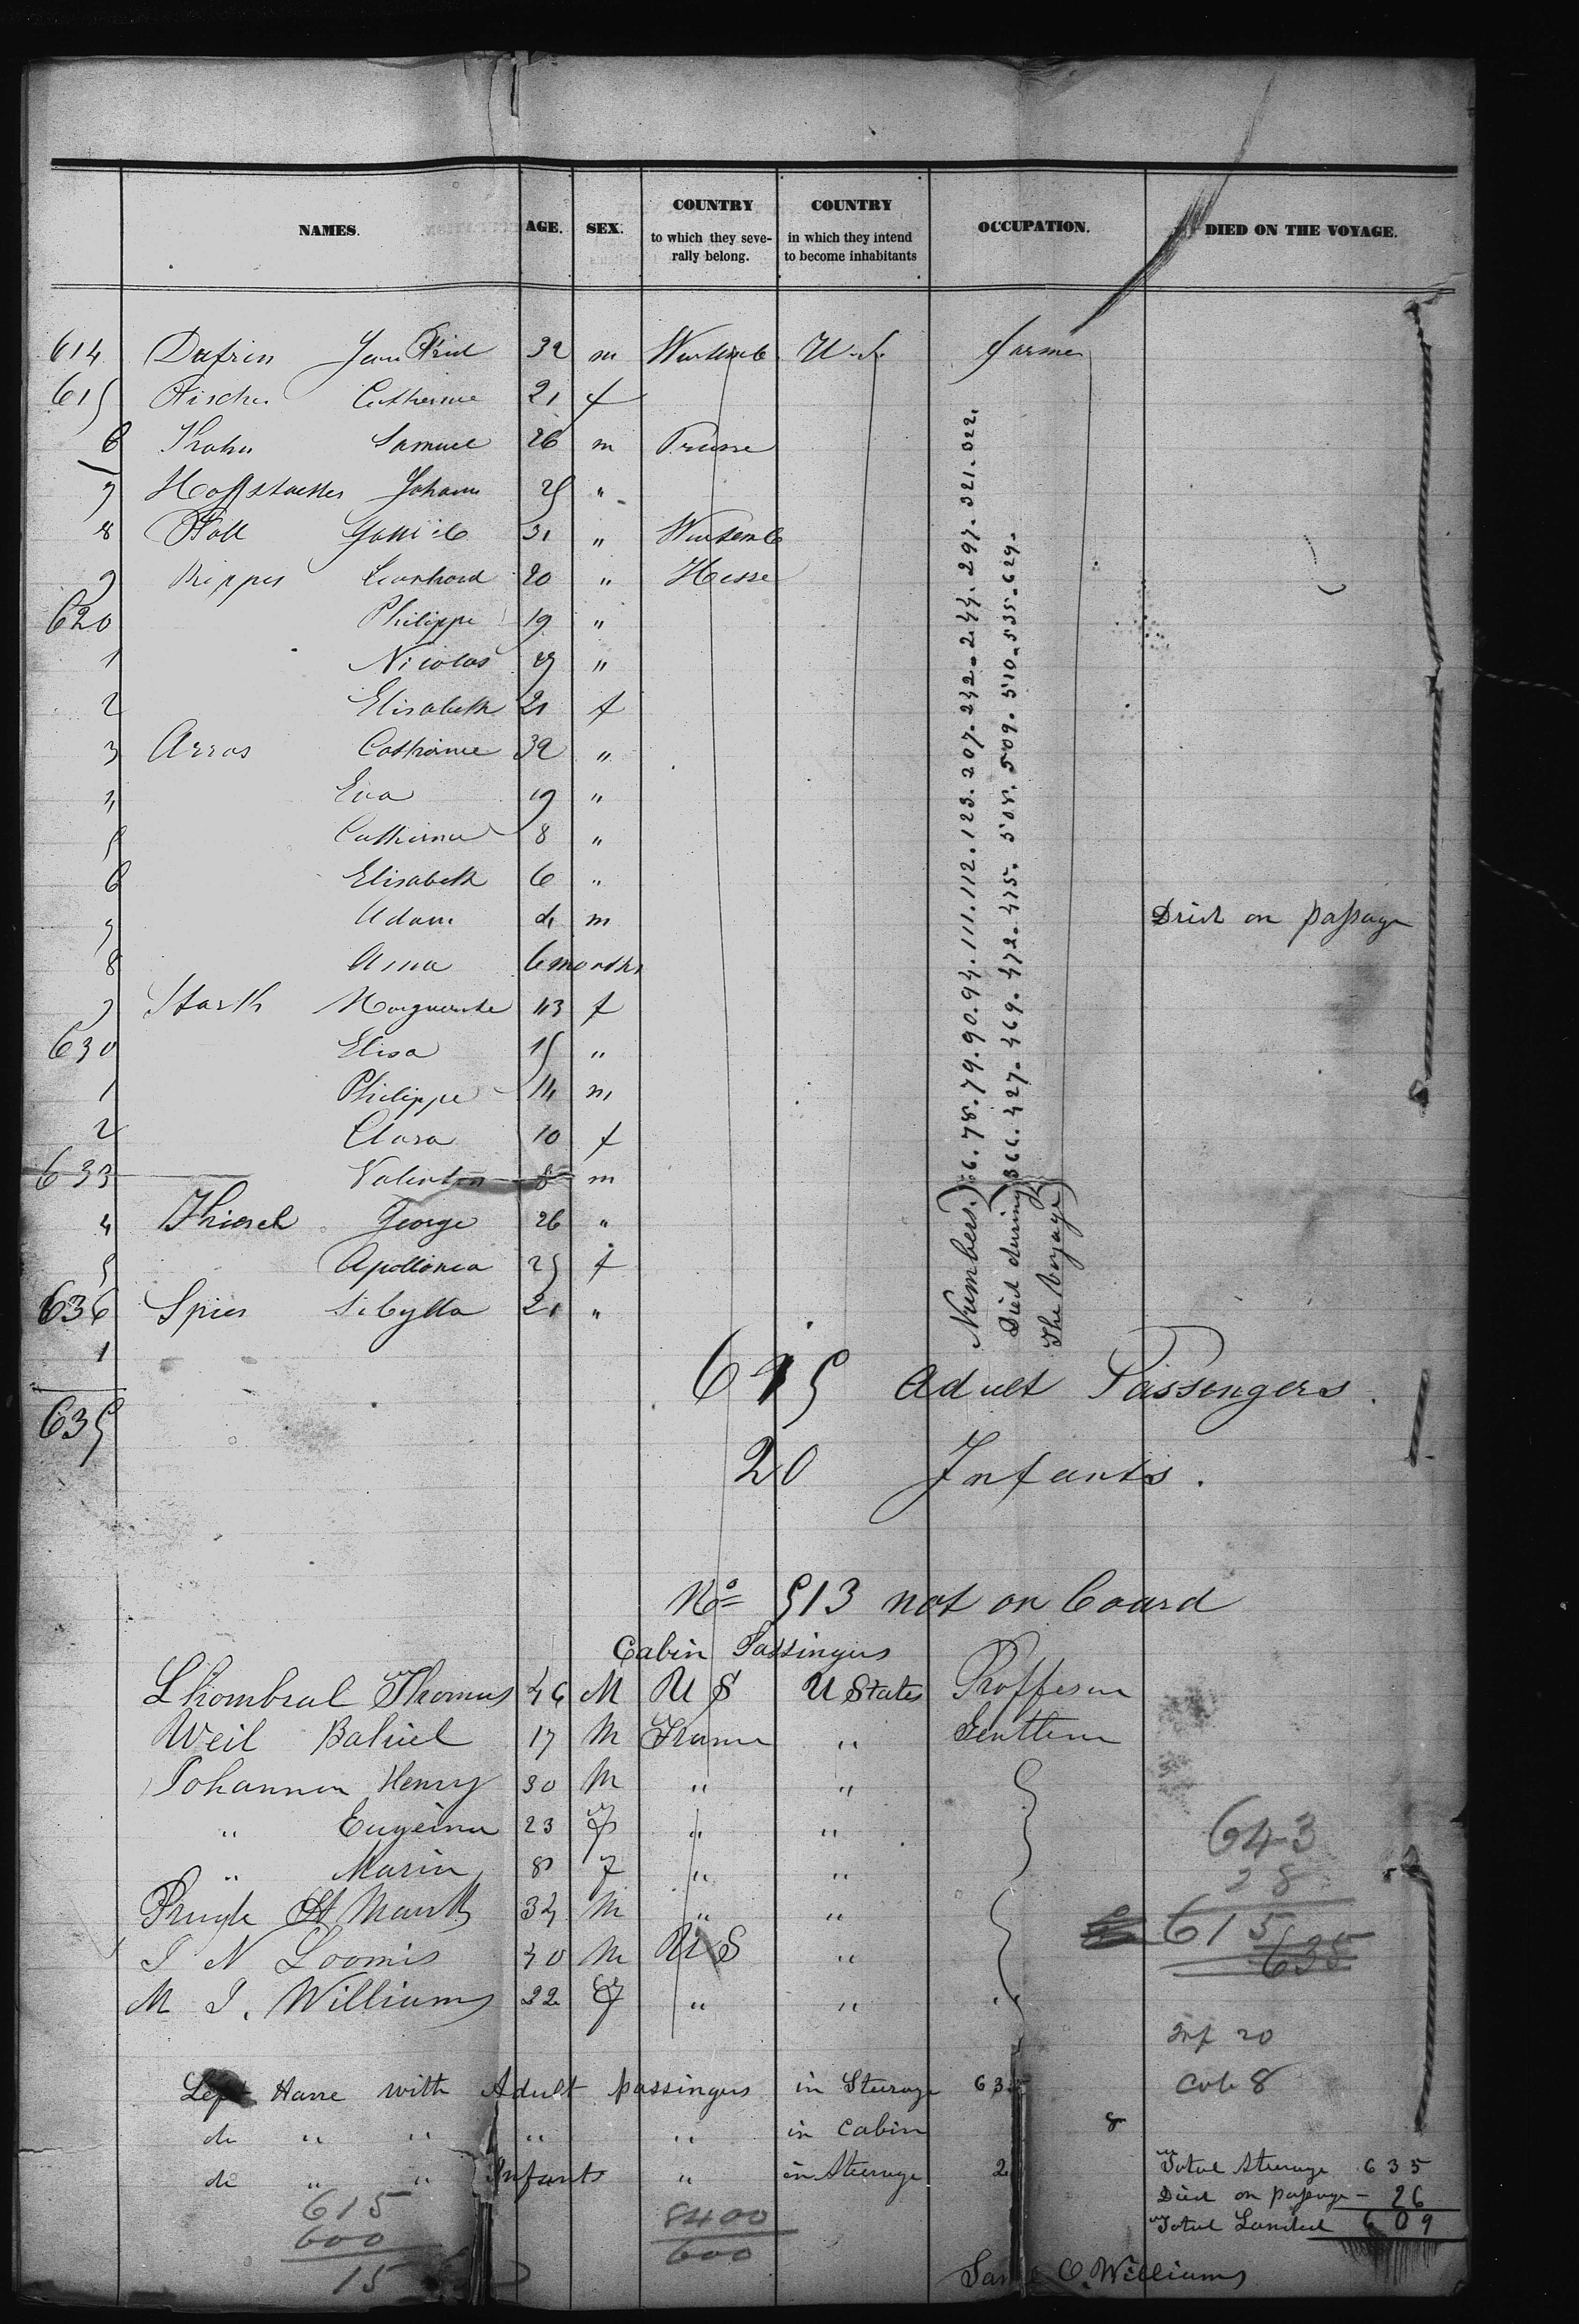 NAMES. AGE. SEX. COUNTRY to which they severally belong. COUNTRY in which they intend to become inhabitants OCCUPATION. DIED ON THE VOYAGE.
614 Dafrin 32 m Wurtemb U.S. farmer
615 Fischer Catherine 21 f
6 Kahn Samuel 26 m Prusse
7 Hoffstaetter Johann 25 "
8 31 " Wurtemb
9 Leonhard 20 " Hesse
620 Philippe 19 "
1 Nicolas "
2 Elisabeth 21 f
3 Arras Catharine 32 "
4 Eva 19 "
5 Catherine 8 "
6 Elisabeth 6 "
7 Adam 4 m Died on passage
8 Anna 6 months
9 Starth Marguerite 43 f
630 Elisa 15 "
1 Philippe 14 m
2 Clara 10 f
633 Valentin 8 m
4 George 26 "
5 Apollonia 25 f
636 Spies Sibylla 21 "
1
635
Numbers. 66. 78. 79. 90. 94. 111. 112. 123. 207. 242. 244. 297. 321. 322.
Died during 366. 427. 469. 472. 475. 508. 509. 510. 535. 629.
The Voyage
615 Adult Passengers.
20 Infants.
No 513 not on board
Cabin Passingers
Thomas 46 M U S U States Proffesor
Weil 17 M France "
Johannen Henry 30 M " "
" 23 F " "
" Marin 8 F " "
34 M " "
J N Loomis 40 M U S "
M J. Williams 22 F " " "
643
28
615
635
Inf 20
Cab 8
Left Havre with Adult passingers in Steerage 63
do " " " " in Cabin 8
do " " Infants " in Steerage 2
Total Steerage 635
Died on passage - 26
Total Landed 609
615
600
15
8400
600
C. Williams